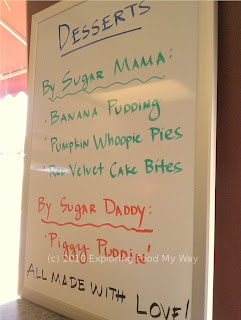 DESSERTS
By SUGAR MAMA:
· BANANA PUDDING
· PUMPKIN WHOOPIE PIES
· RED VELVET CAKE BITES
By SUGAR DADDY:
· PIGGY PUDDIN'
(c) 2010 Exploring Food My Way
ALL MADE WITH LOVE!